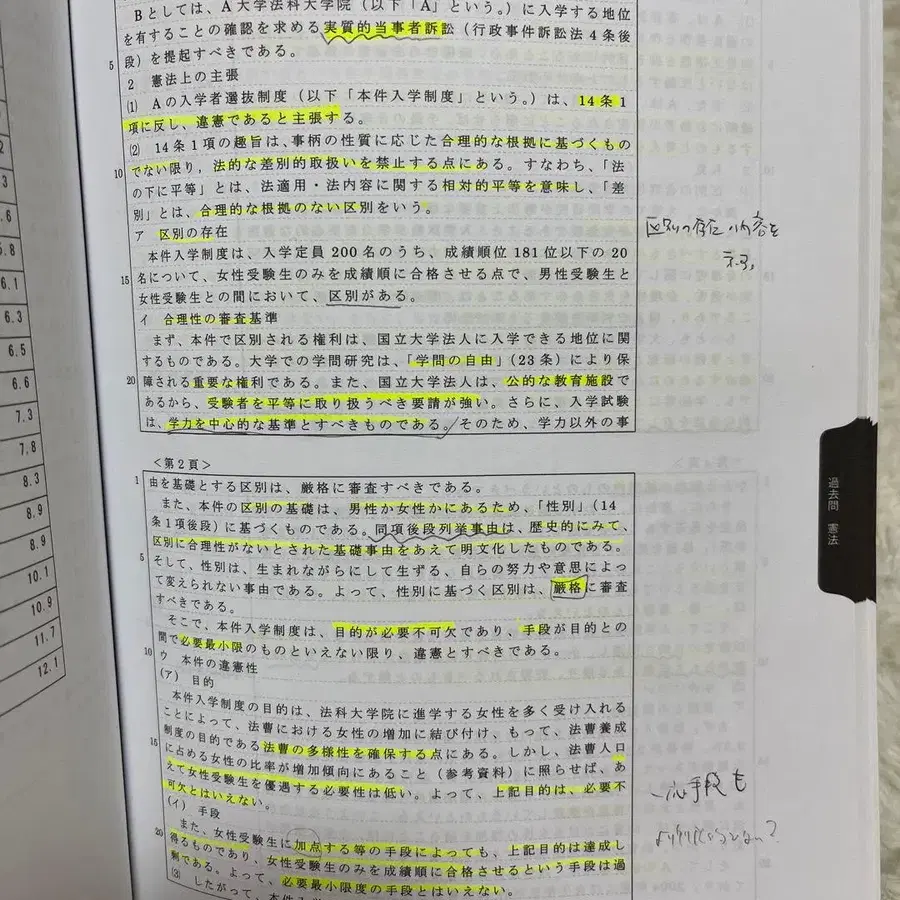 Bとしては、A大学法科大学院(以下「A」という。)に入学する地位
を有することの確認を求める実質的当事者訴訟(行政事件訴訟法4条後
5 段)を提起すべきである。
2 憲法上の主張
(1) Aの入学者選抜制度(以下「本件入学制度」という。)は、14条1
項に反し、違憲であると主張する。
(2) 14条1項の趣旨は、事柄の性質に応じた合理的な根拠に基づくもの
でない限り、法的な差別的取扱いを禁止する点にある。すなわち、「法
10 の下に平等」とは、法適用・法内容に関する相対的平等を意味し、「差
別」とは、合理的な根拠のない区別をいう。
ア 区別の存在
本件入学制度は、入学定員200名のうち、成績順位181位以下の20
名について、女性受験生のみを成績順に合格させる点で、男性受験生と
15 女性受験生との間において、区別がある。
イ 合理性の審査基準
まず、本件で区別される権利は、国立大学法人に入学できる地位に関
するものである。大学での学問研究は、「学問の自由」(23条)により保
20 障される重要な権利である。また、国立大学法人は、公的な教育施設で
あるから、受験者を平等に取り扱うべき要請が強い。さらに、入学試験
は、学力を中心的な基準とすべきものである。そのため、学力以外の事
<第2頁>
1 由を基礎とする区別は、厳格に審査すべきである。
また、本件の区別の基礎は、男性か女性かにあるため、「性別」(14
条1項後段)に基づくものである。同項後段列挙事由は、歴史的にみて、
区別に合理性がないとされた基礎事由をあえて明文化したものである。
5 そして、性別は、生まれながらにして生ずる、自らの努力や意思によっ
て変えられない事由である。よって、性別に基づく区別は、厳格に審査
すべきである。
そこで、本件入学制度は、目的が必要不可欠であり、手段が目的との
間で必要最小限のものといえない限り、違憲とすべきである。
10 ウ 本件の違憲性
(ア) 目的
本件入学制度の目的は、法科大学院に進学する女性を多く受け入れる
ことによって、法曹における女性の増加に結び付け、もって、法曹養成
制度の目的である法曹の多様性を確保する点にある。しかし、法曹人口
15 に占める女性の比率が増加傾向にあること(参考資料)に照らせば、あ
えて女性受験生を優遇する必要性は低い。よって、上記目的は、必要不
可欠とはいえない。
(イ) 手段
20 また、女性受験生に加点する等の手段によっても、上記目的は達成し
得るものであり、女性受験生のみを成績順に合格させるという手段は過
剰である。よって、必要最小限度の手段とはいえない。
(3) したがって、本件入学
区別の存在の内容を
過去問 憲法
一応手段も
3
.6
5.8
6.1
6.3
6.5
6.6
7.3
7.8
8.3
8.9
8.9
10.1
10.9
11.7
12.1